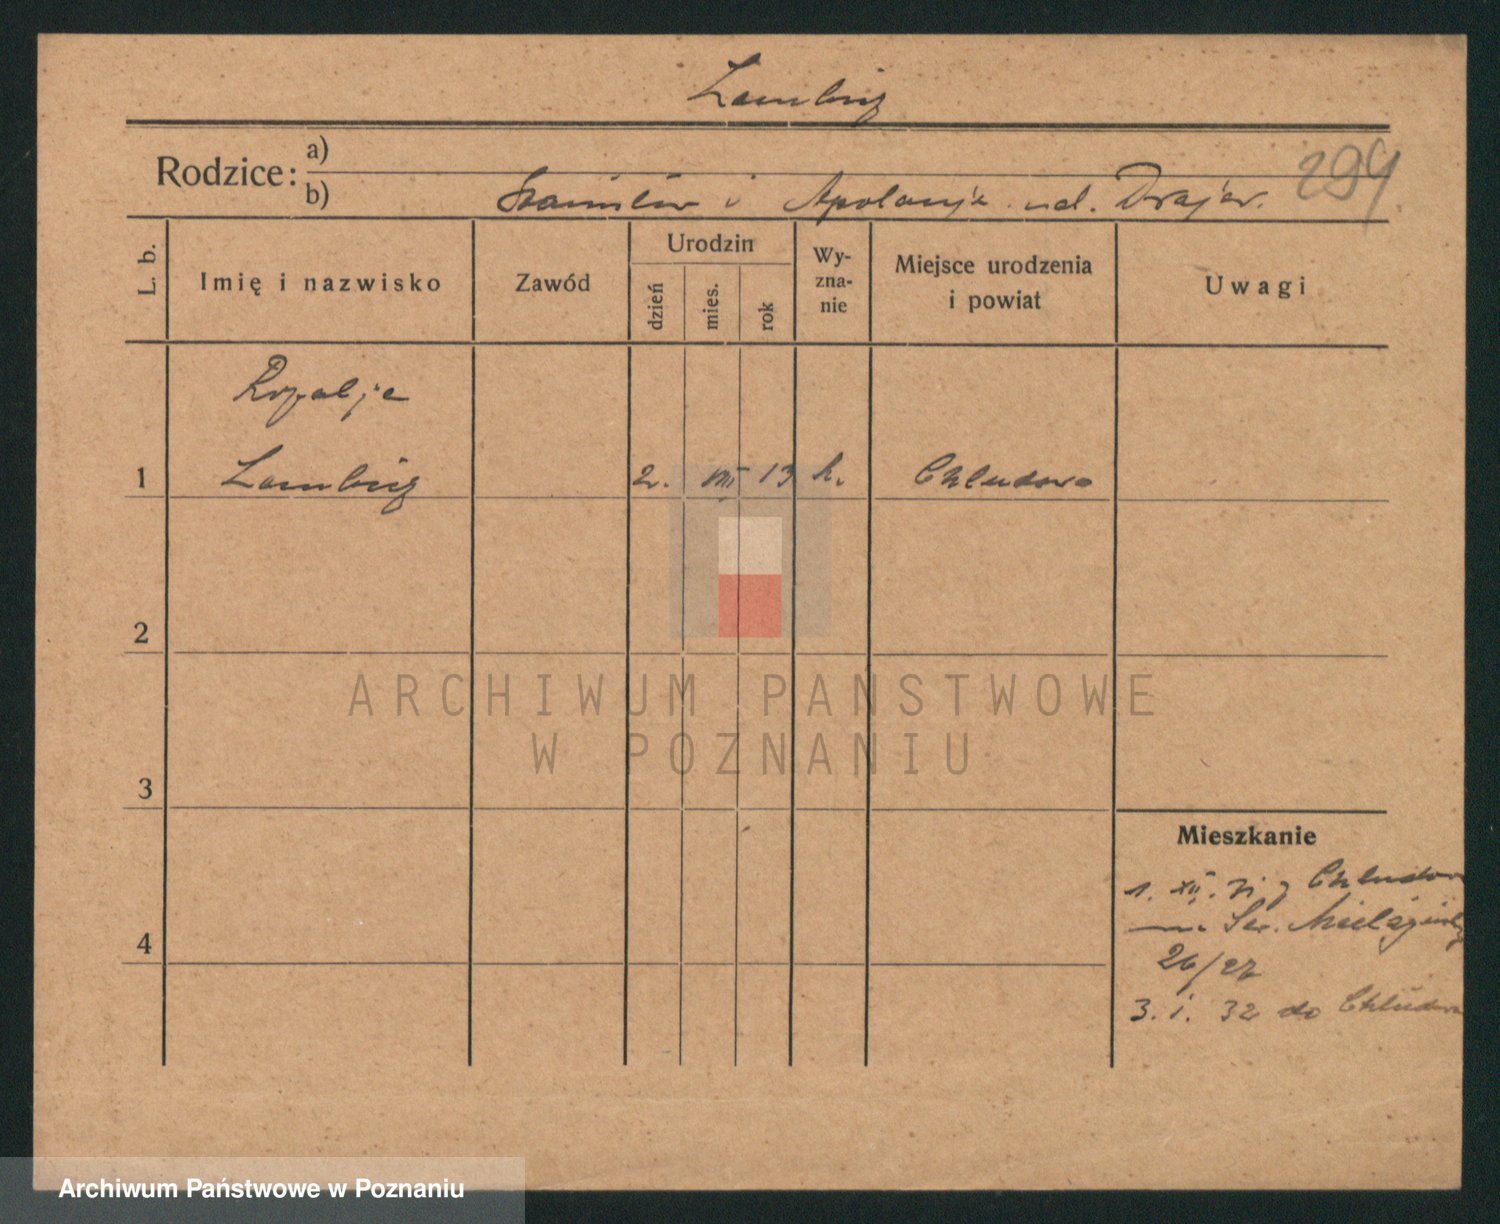 Lambuig
294
Rodzice:
a)
b) Stanisław i Apolonja ud. Drajer.
L. b.
Imię i nazwisko
Zawód
Urodzin
dzień
mies.
rok
Wy-
zna-
nie
Miejsce urodzenia
i powiat
Uwagi
Rozalja
1 Lambuig 2. VIII 13 k. Chludowo
2
3
4
Mieszkanie
1. XII. 31 z Chludowa
Św.
26/27
3. I. 32 do Chludowa
ARCHIWUM PAŃSTWOWE
W POZNANIU
Archiwum Państwowe w Poznaniu